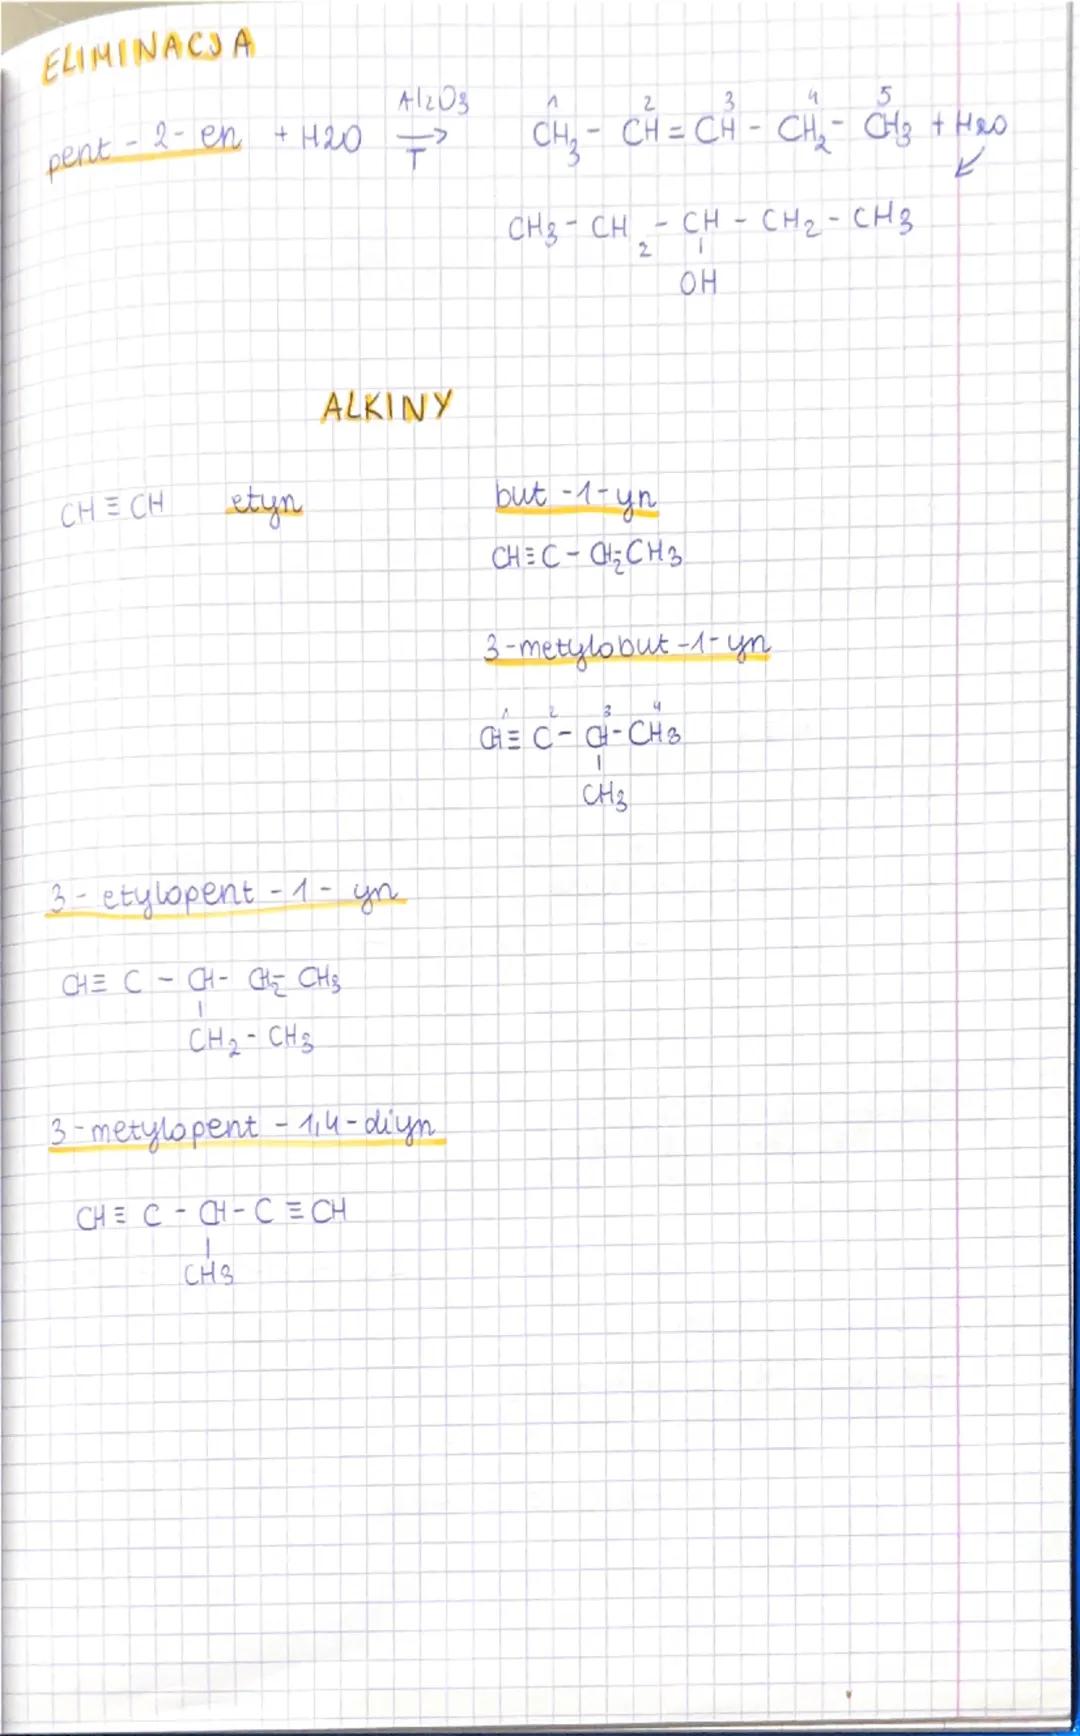 ELIMINACJA
Al2O3
pent - 2 - en + H2O → CH3 - CH = CH - CH2 - CH3 + H2O
T
1 2 3 4 5
CH3 - CH2 - CH - CH2 - CH3
OH
ALKINY
CH ≡ CH etyn
but - 1 - yn
CH ≡ C - CH2 - CH3
3 - metylobut - 1 - yn
1 2 3 4
CH ≡ C - CH - CH3
CH3
3 - etylopent - 1 - yn
CH ≡ C - CH - CH2 - CH3
CH2 - CH3
3 - metylopent - 1,4 - diyn
CH ≡ C - CH - C ≡ CH
CH3